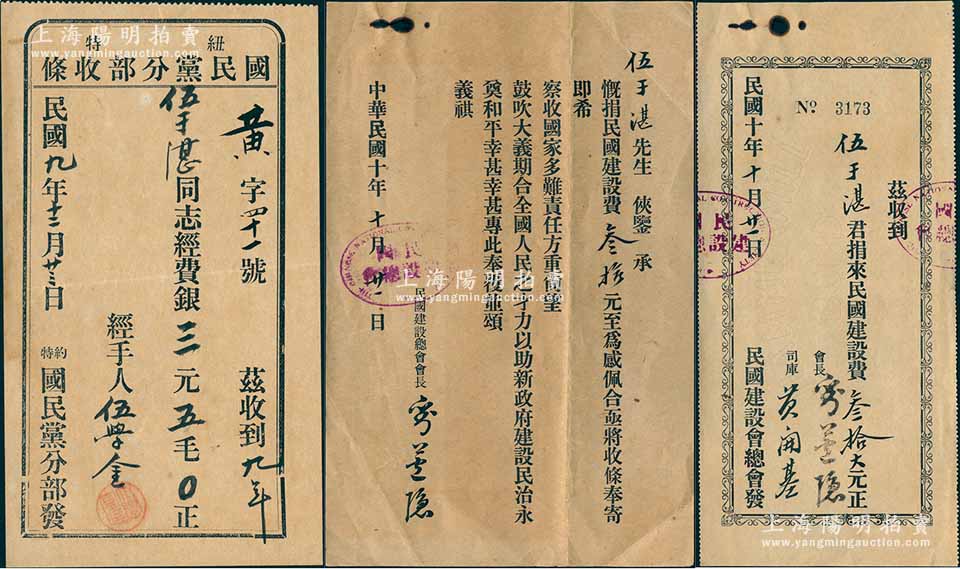 上海陽明拍賣
www.yangmingauction.com
紐特
國民黨分部收條
黃字四十一號 茲收到九年
伍于湛同志經費銀三元五毛0正
經手人伍學金
民國九年十二月廿三日
約特國民黨分部發
伍于湛先生俠鑒承
慨捐民國建設費叁拾元至爲感佩合亟將收條奉寄
即希
察收國家多難責任方重尚望
鼓吹大義期合全國人民之力以助新政府建設民治永
奠和平幸甚幸甚專此奉復並頌
義祺
民國建設總會會長
中華民國十年十月廿一日
上海陽明拍賣
www.yangmingauction.com
茲收到
No 3173
伍于湛君捐來民國建設費叁拾大元正
會長
司庫黃開基
民國十年十月廿一日
民國建設會總會發
上海陽明拍賣
www.yangmingauction.com